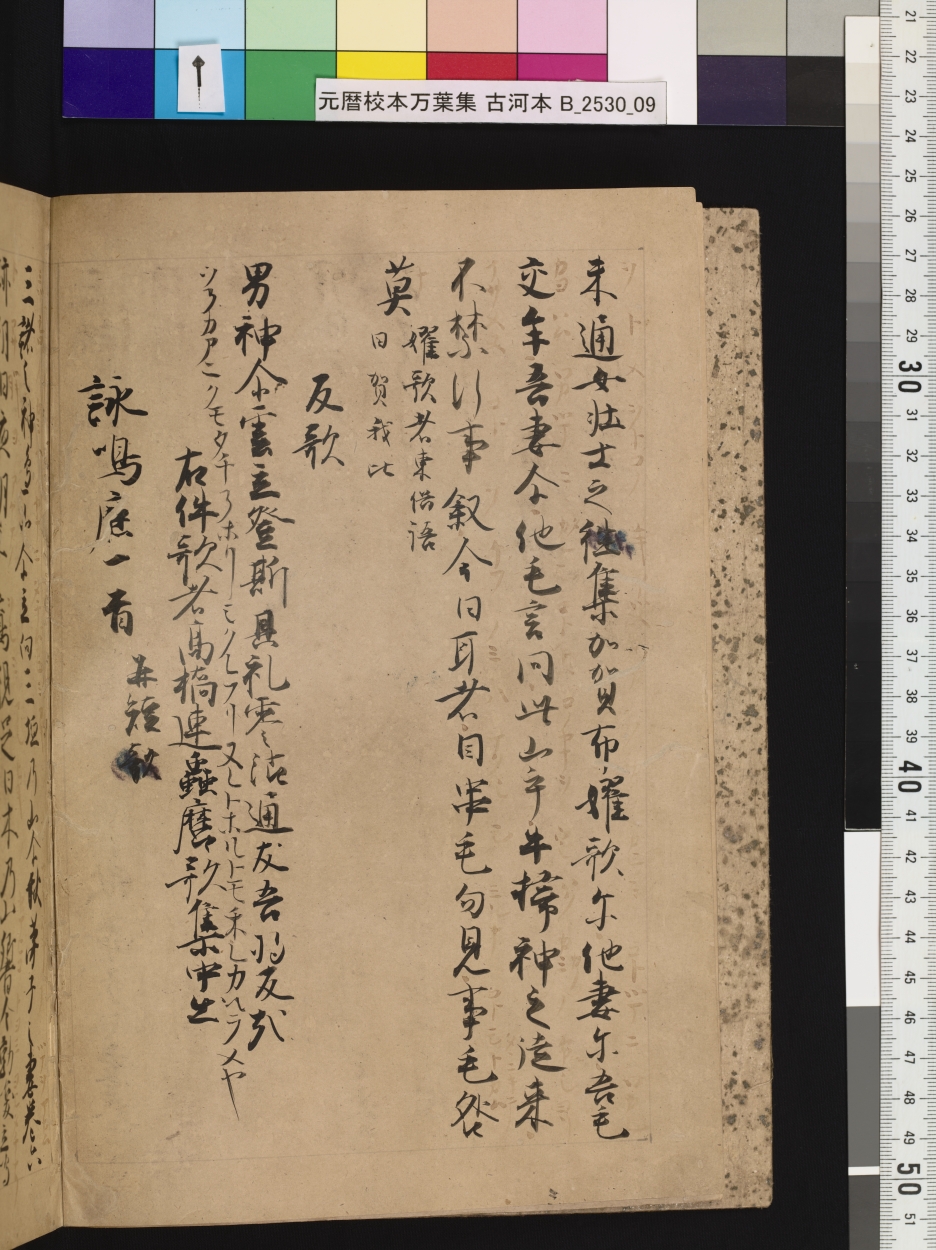 元暦校本万葉集 古河本 B_2530_09
未通女壮士之徃集加賀布嬥歌尓他妻尓吾毛
交牟吾妻尓他毛言問此山乎牛掃神之従来
不禁行事叙今日耳者目串毛勿見事毛咎
莫
嬥歌者東俗語
曰賀我比
反歌
男神尓雲立登斯具礼零沾通友吾将反哉
クモタチノホリシクレフリヌレトホルトモ カヘラメヤ
右件歌者高橋連蟲麿歌集中出
詠鳴鹿一首
并短歌
三諸之神邊山尓立向三垣乃山尓秋芽子之妻巻六